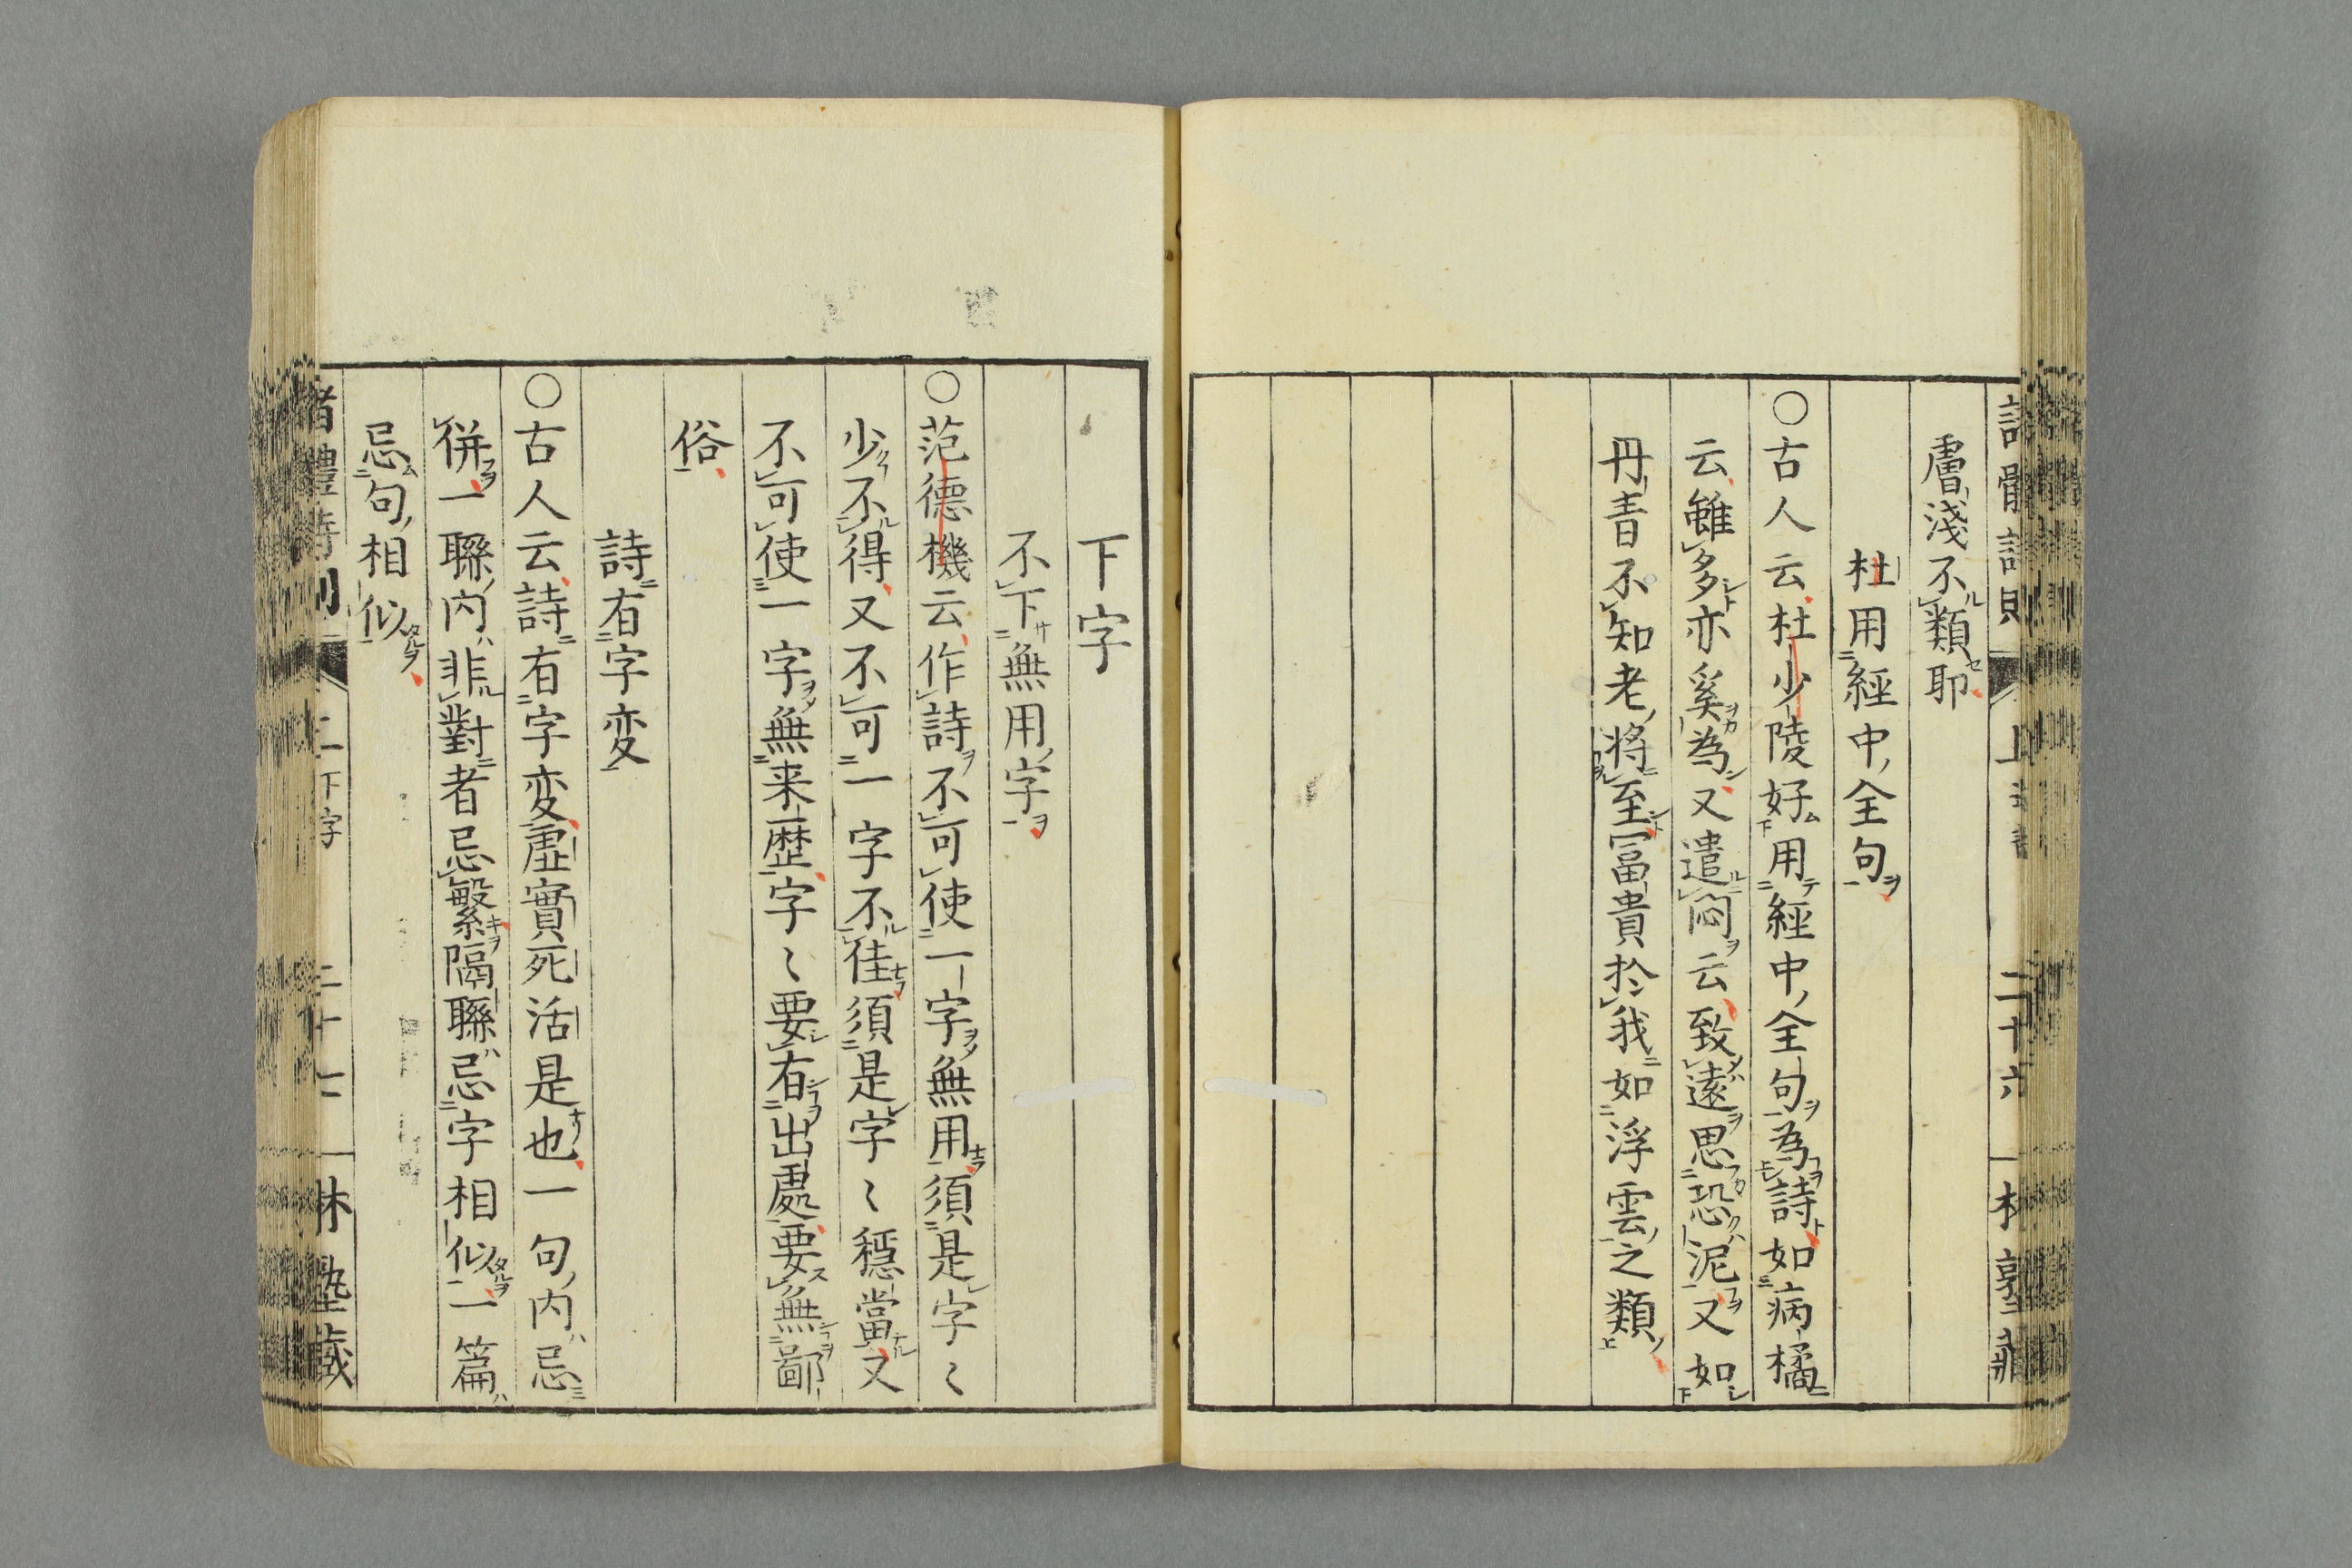 膚淺不類耶
杜用經中全句
○古人云杜少陵好用經中全句為詩如病橘
云雖多亦奚為又遣悶云致遠思恐泥又如
丹青不知老將至冨貴扵我如浮雲之類
下字
不下無用字
○范德機云作詩不可使一字無用須是字〻
少不得又不可一字不佳須是字〻穩當又
不可使一字無来歴字〻要有出處要無鄙
俗
詩有字変
○古人云詩有字変虛實死活是也一句内忌
併一聯内非對者忌繫隔聯忌字相似一篇
忌句相似
二 下字 二十七 一林塾藏